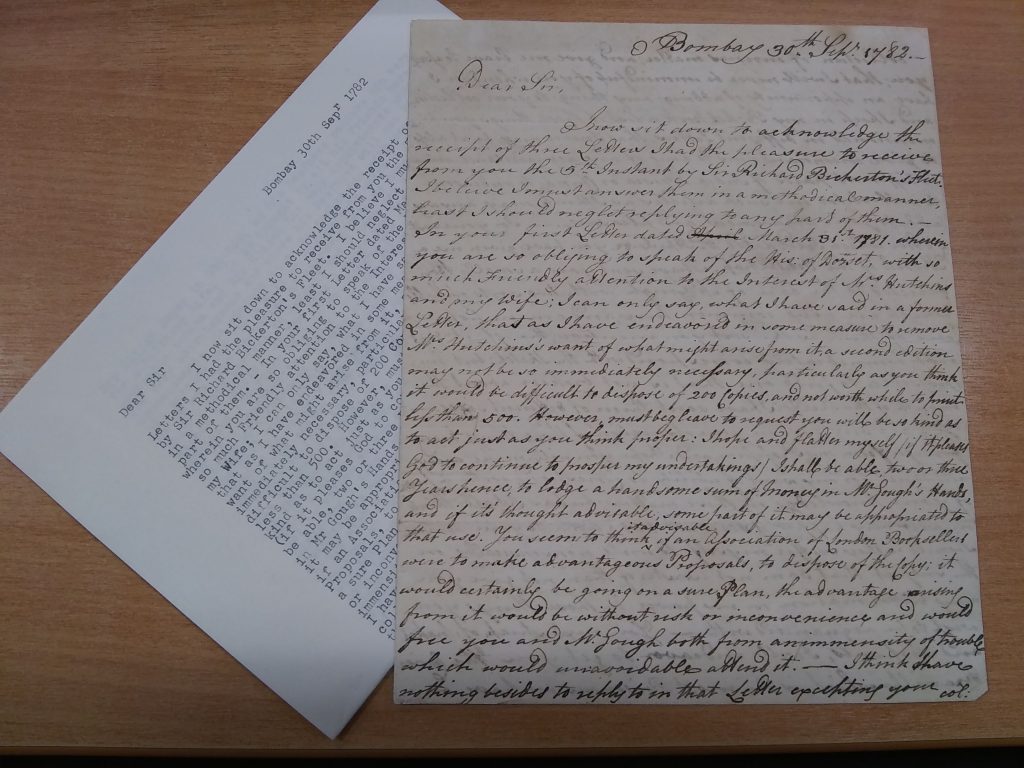 Bombay 30th Sepr 1782
Dear Sir
I now sit down to acknowledge the receipt of
Letters I had the pleasure to receive from you the
by Sir Richard Bickerton's Fleet. I believe I mu
in a methodical manner, least I should neglect
part of them. In your first Letter dated Ma
wherein you are so obliging to speak of the
so much Friendly attention to the Interes
my Wife; I can only say, what I have s
that as I have endeavored in some me
want of what might arise from it,
immediately necessary, particula
difficult to dispose of 200 Co
less than 500. However, must
kind as to act just as you
(if it pleases God to
be able, two or three
in Mr Gough's Hands
it may be appropri
if an Associati
Proposals, to
a sure Plan
or inconv
immens
I ha
co
Bombay 30.th Sepr. 1782.—
Dear Sir,
I now sit down to acknowledge the
receipt of three Letters I had the pleasure to receive
from you the 5th Instant by Sir Richard Bickerton's Fleet.
I believe I must answer them in a methodical manner,
least I should neglet replying to any part of them. —
In your first Letter dated April March 31st 1781. wherein
you are so oblying to speak of the His: of Dorset, with so
much Friendly attention to the Interest of Mrs Hutchins
and my Wife; I can only say, what I have said in a former
Letter, that as I have endeavored in some measure to remove
Mrs Hutchins's want of what might arise from it, a second edition
may not be so immediately necessary, particularly as you think
it would be difficult to dispose of 200 Copies, and not worth while to print
less than 500. However, must beg leave to request you will be so kind as
to act just as you think proper: I hope and flatter myself (if it pleases
God to continue to prosper my undertakings) I shall be able, two or three
Years hence, to lodge a handsome sum of Money in Mr. Gough's Hands,
and if its thought advisable, some part of it may be appropriated to
that use. You seem to think it advisable, if an Association of London Booksellers
were to make advantageous Proposals, to dispose of the Copy; it
would certainly be going on a sure Plan, the advantage arising
from it would be without risk or inconvenience and would
free you and Mr. Gough both from an immensity of trouble
which would unavoidable attend it. — I think I have
nothing besides to reply to in that Letter excepting your col: